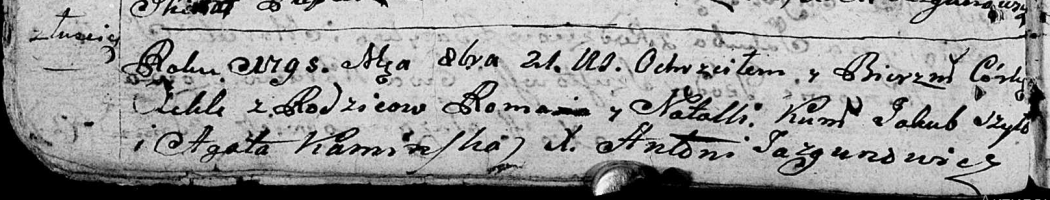 z Łusicy
Roku 1795. Mca 8bra 21. dd. Ochrzciłem, y Bierzm Córkę
Teklę z Rodzicow Romana y Natalli. Kum Jakub Szyło
i Agata Kaminska, X. Antoni Jazgunowicz